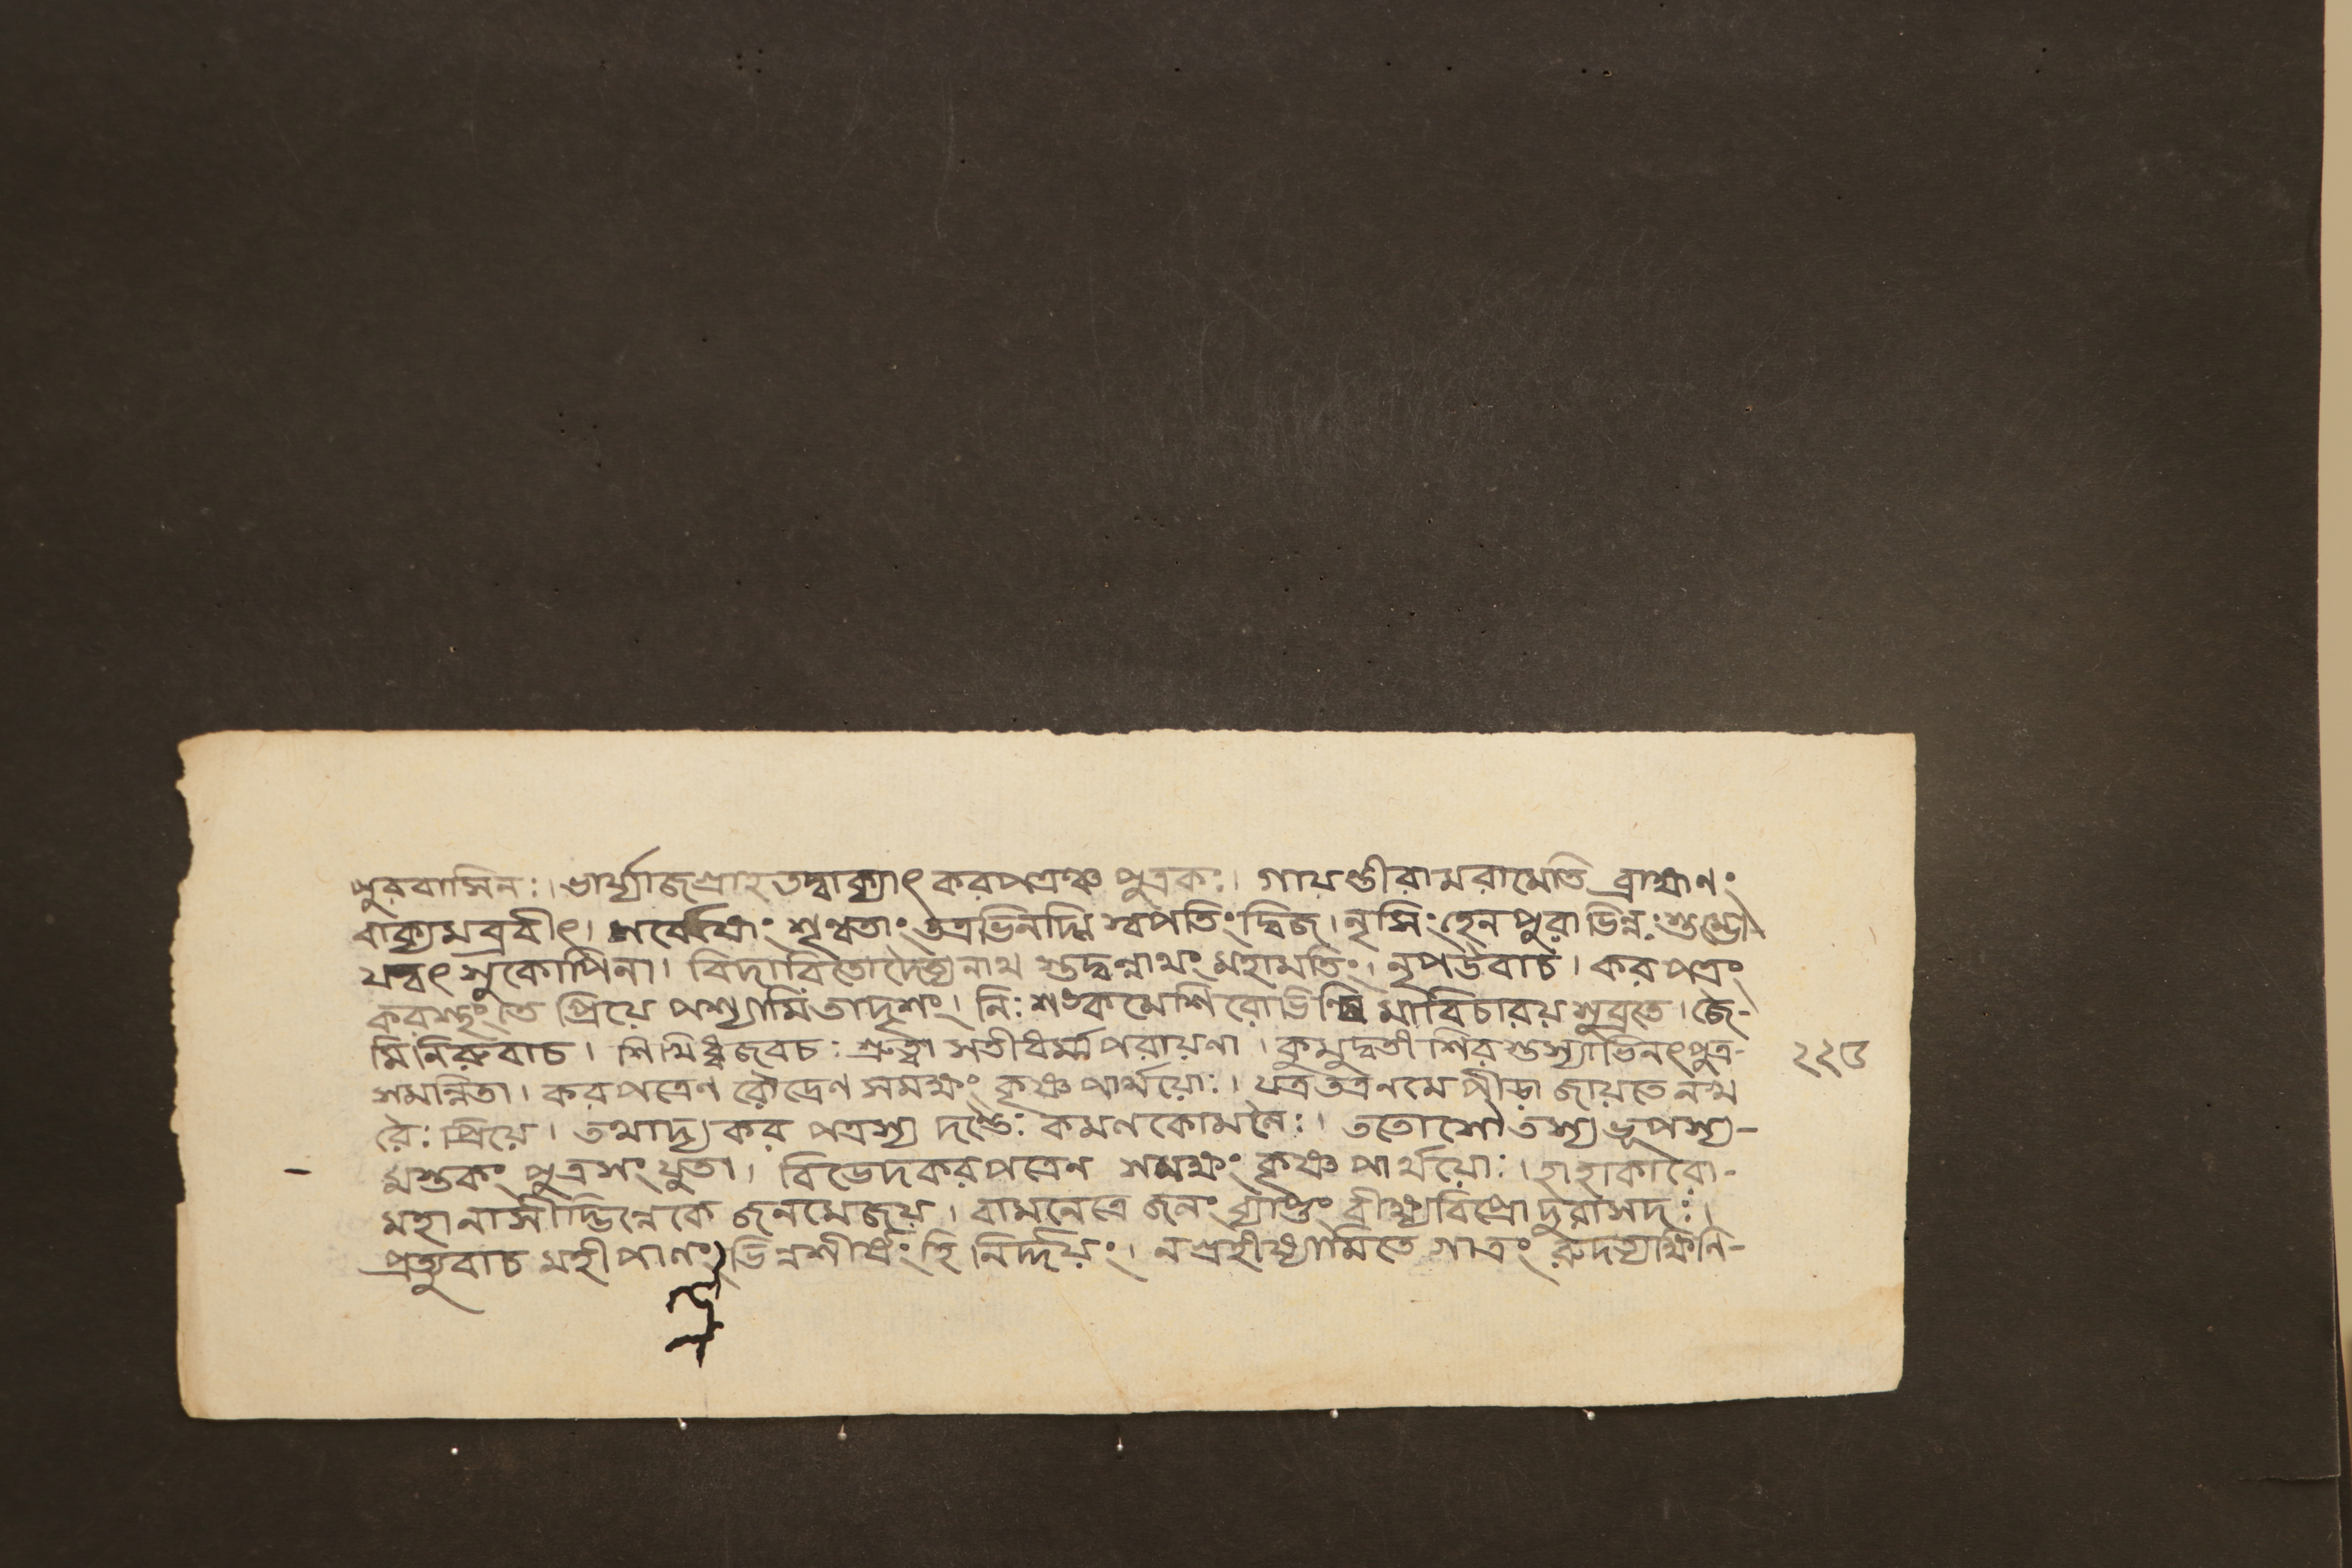 পুরবাসিনঃ। ভার্য্যাজগ্রাহতদ্বাক্যাৎ করপত্রঞ্চ পুত্রকঃ। গায়ন্তীরামরামেতি ব্রাহ্মণং
বাক্যমব্রবীৎ। সর্বেষাং শৃণ্বতাং তত্রভিনদ্মি স্বপতিং দ্বিজ। নৃসিংহেনপুরাভিন্নঃ শুম্ভো
যদ্বৎ সুকোপিনা। বিদারিতোদৈত্যনাথ স্তদ্বন্নাথং মহামতিং। নৃপউবাচ। করপত্রং
করস্থং তে প্রিয়ে পশ্যামিতাদৃশং। নিঃশঙ্কমেশিরোভিন্ধি মাবিচারয় শুব্রতে। জৈ-
মিনিরুবাচ। শিখিধ্বজবচঃ শ্রুত্বা সতীধর্ম্মপরায়ণা। কুমুদ্বতী শিরস্তস্যাভিনৎপুত্র-
সমন্বিতা। করপত্রেণ রৌদ্রেণ সমক্ষং কৃষ্ণপার্থয়োঃ। যত্রতত্রনমে পীড়া জায়তে নখ
রৈঃ প্রিয়ে। তথাদ্য করপত্রস্য দন্তৈঃ কমলকোমলৈঃ। ততোসৌতস্য ভূপস্য-
মস্তকং পুত্রসংযুতা। বিভেদকরপত্রেণ সমক্ষং কৃষ্ণপার্থয়োঃ। হাহাকারো-
মহানাসীদ্ভিন্নেকে জনমেজয়। বামনেত্রে জলং ব্যাপ্তং বীক্ষ্যবিপ্রোদুরাসদঃ।
প্রত্যুবাচ মহীপালং ভিন্নশীর্ষং হি নির্দ্দয়ং। নগ্রহীষ্যামিতে গাত্রং রুদত্যাক্ষিনি-
২২৫